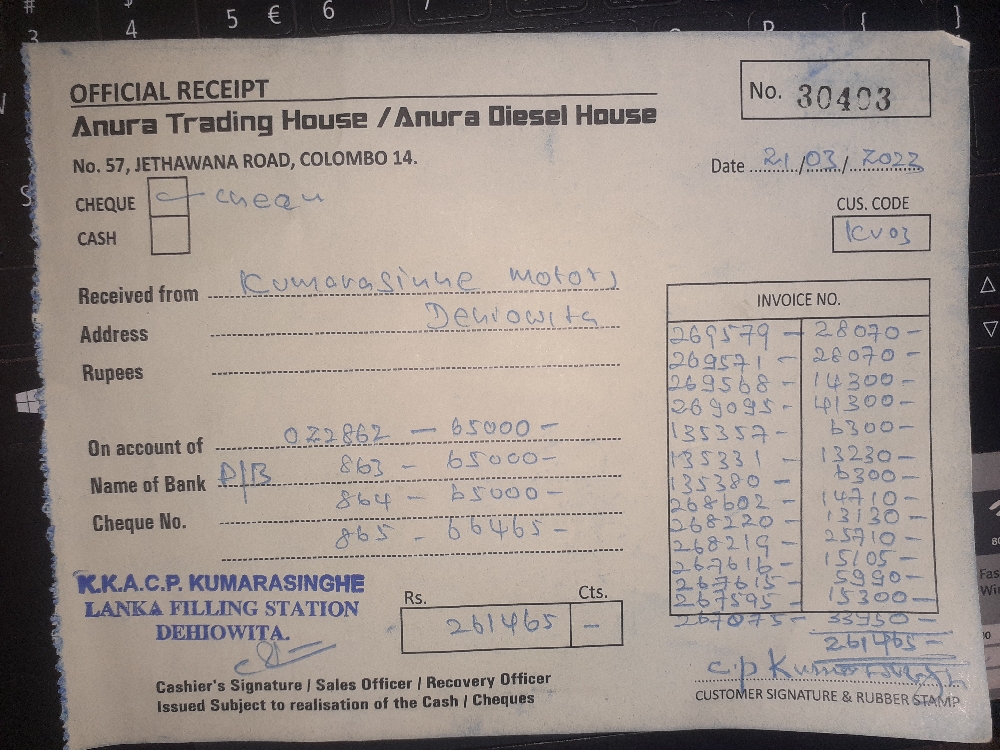 OFFICIAL RECEIPT
No. 30403
Anura Trading House / Anura Diesel House
No. 57, JETHAWANA ROAD, COLOMBO 14.
Date 21/03/2022
CHEQUE cheqn
CASH
CUS. CODE
KV03
Received from Kumarasinhe motors
Address Dehiowita
Rupees
INVOICE NO.
269579 - 28070 -
269571 - 28070 -
269568 - 14300 -
269095 - 41300 -
135357 - 6300 -
135331 - 13230 -
135380 - 6300 -
268602 - 14710 -
268220 - 13130 -
268219 - 25710 -
267616 - 15105 -
267615 - 5990 -
267595 - 15300 -
267075 - 33950 -
261465 -
On account of 022862 - 65000 -
Name of Bank P/B 863 - 65000 -
864 - 65000 -
Cheque No.
865 - 66465 -
K.K.A.C.P. KUMARASINGHE
LANKA FILLING STATION
DEHIOWITA.
Rs. Cts.
261465 -
Cashier's Signature / Sales Officer / Recovery Officer
Issued Subject to realisation of the Cash / Cheques
CUSTOMER SIGNATURE & RUBBER STAMP